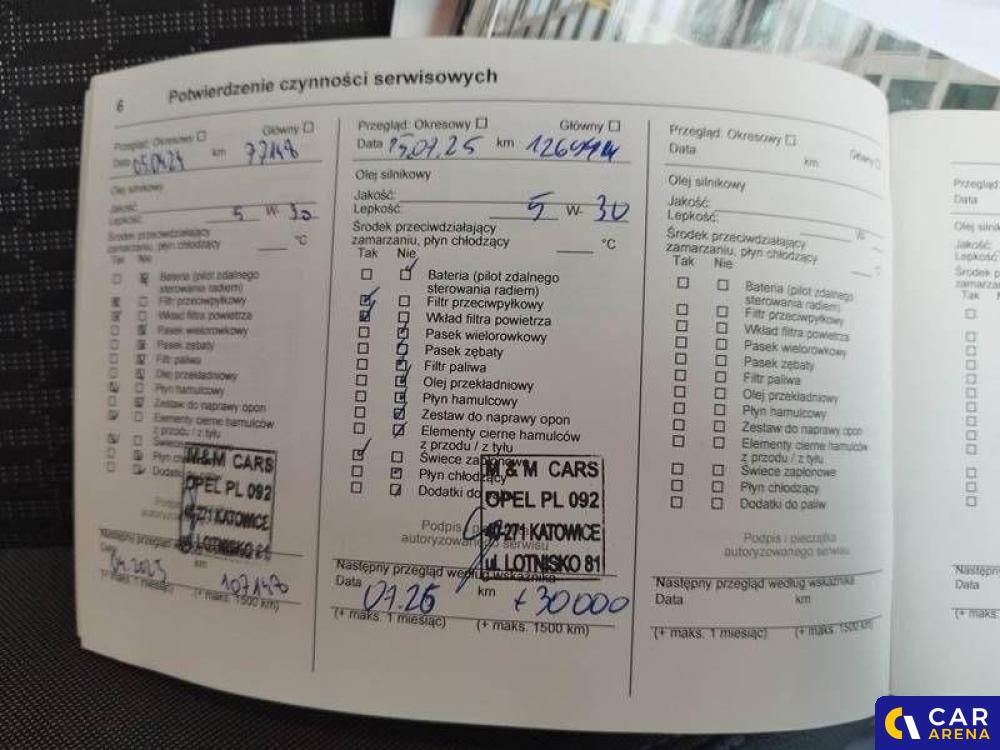 6 Potwierdzenie czynności serwisowych
Przegląd: Okresowy ☐ Główny ☐
Data 05.04.24 km 77148
Olej silnikowy
Jakość:
Lepkość: 5 W- 30
Środek przeciwdziałający
zamarzaniu, płyn chłodzący °C
Tak Nie
Bateria (pilot zdalnego
sterowania radiem)
Filtr przeciwpyłkowy
Wkład filtra powietrza
Pasek wielorowkowy
Pasek zębaty
Filtr paliwa
Olej przekładniowy
Płyn hamulcowy
Zestaw do naprawy opon
Elementy cierne hamulców
z przodu / z tyłu
Świece
Płyn
Dodatki
M&M CARS
OPEL PL 092
40-271 KATOWICE
ul. LOTNISKO 81
Następny przegląd
Data km
04.2025 107148
(+ maks. 1 miesiąc) (+ maks. 1500 km)
Przegląd: Okresowy ☐ Główny ☐
Data 25.07.25 km
Olej silnikowy
Jakość:
Lepkość: 5 W- 30
Środek przeciwdziałający
zamarzaniu, płyn chłodzący °C
Tak Nie
Bateria (pilot zdalnego
sterowania radiem)
Filtr przeciwpyłkowy
Wkład filtra powietrza
Pasek wielorowkowy
Pasek zębaty
Filtr paliwa
Olej przekładniowy
Płyn hamulcowy
Zestaw do naprawy opon
Elementy cierne hamulców
z przodu / z tyłu
Świece zapłonowe
Płyn chłodzący
Dodatki do
M&M CARS
OPEL PL 092
40-271 KATOWICE
ul. LOTNISKO 81
Podpis i
autoryzowanego serwisu
Następny przegląd według wskaźnika
Data 07.26 km +30000
(+ maks. 1 miesiąc) (+ maks. 1500 km)
Przegląd: Okresowy ☐ Główny ☐
Data km
Olej silnikowy
Jakość:
Lepkość: W-
Środek przeciwdziałający
zamarzaniu, płyn chłodzący °C
Tak Nie
Bateria (pilot zdalnego
sterowania radiem)
Filtr przeciwpyłkowy
Wkład filtra powietrza
Pasek wielorowkowy
Pasek zębaty
Filtr paliwa
Olej przekładniowy
Płyn hamulcowy
Zestaw do naprawy opon
Elementy cierne hamulców
z przodu / z tyłu
Świece zapłonowe
Płyn chłodzący
Dodatki do paliw
Podpis i pieczątka
autoryzowanego serwisu
Następny przegląd według wskaźnika
Data km
(+ maks. 1 miesiąc) (+ maks. 1500 km)
Przegląd:
Data
Olej
Jakość:
Lepkość:
Środek
Tak
Następny
Data
(+ maks.
CAR
ARENA